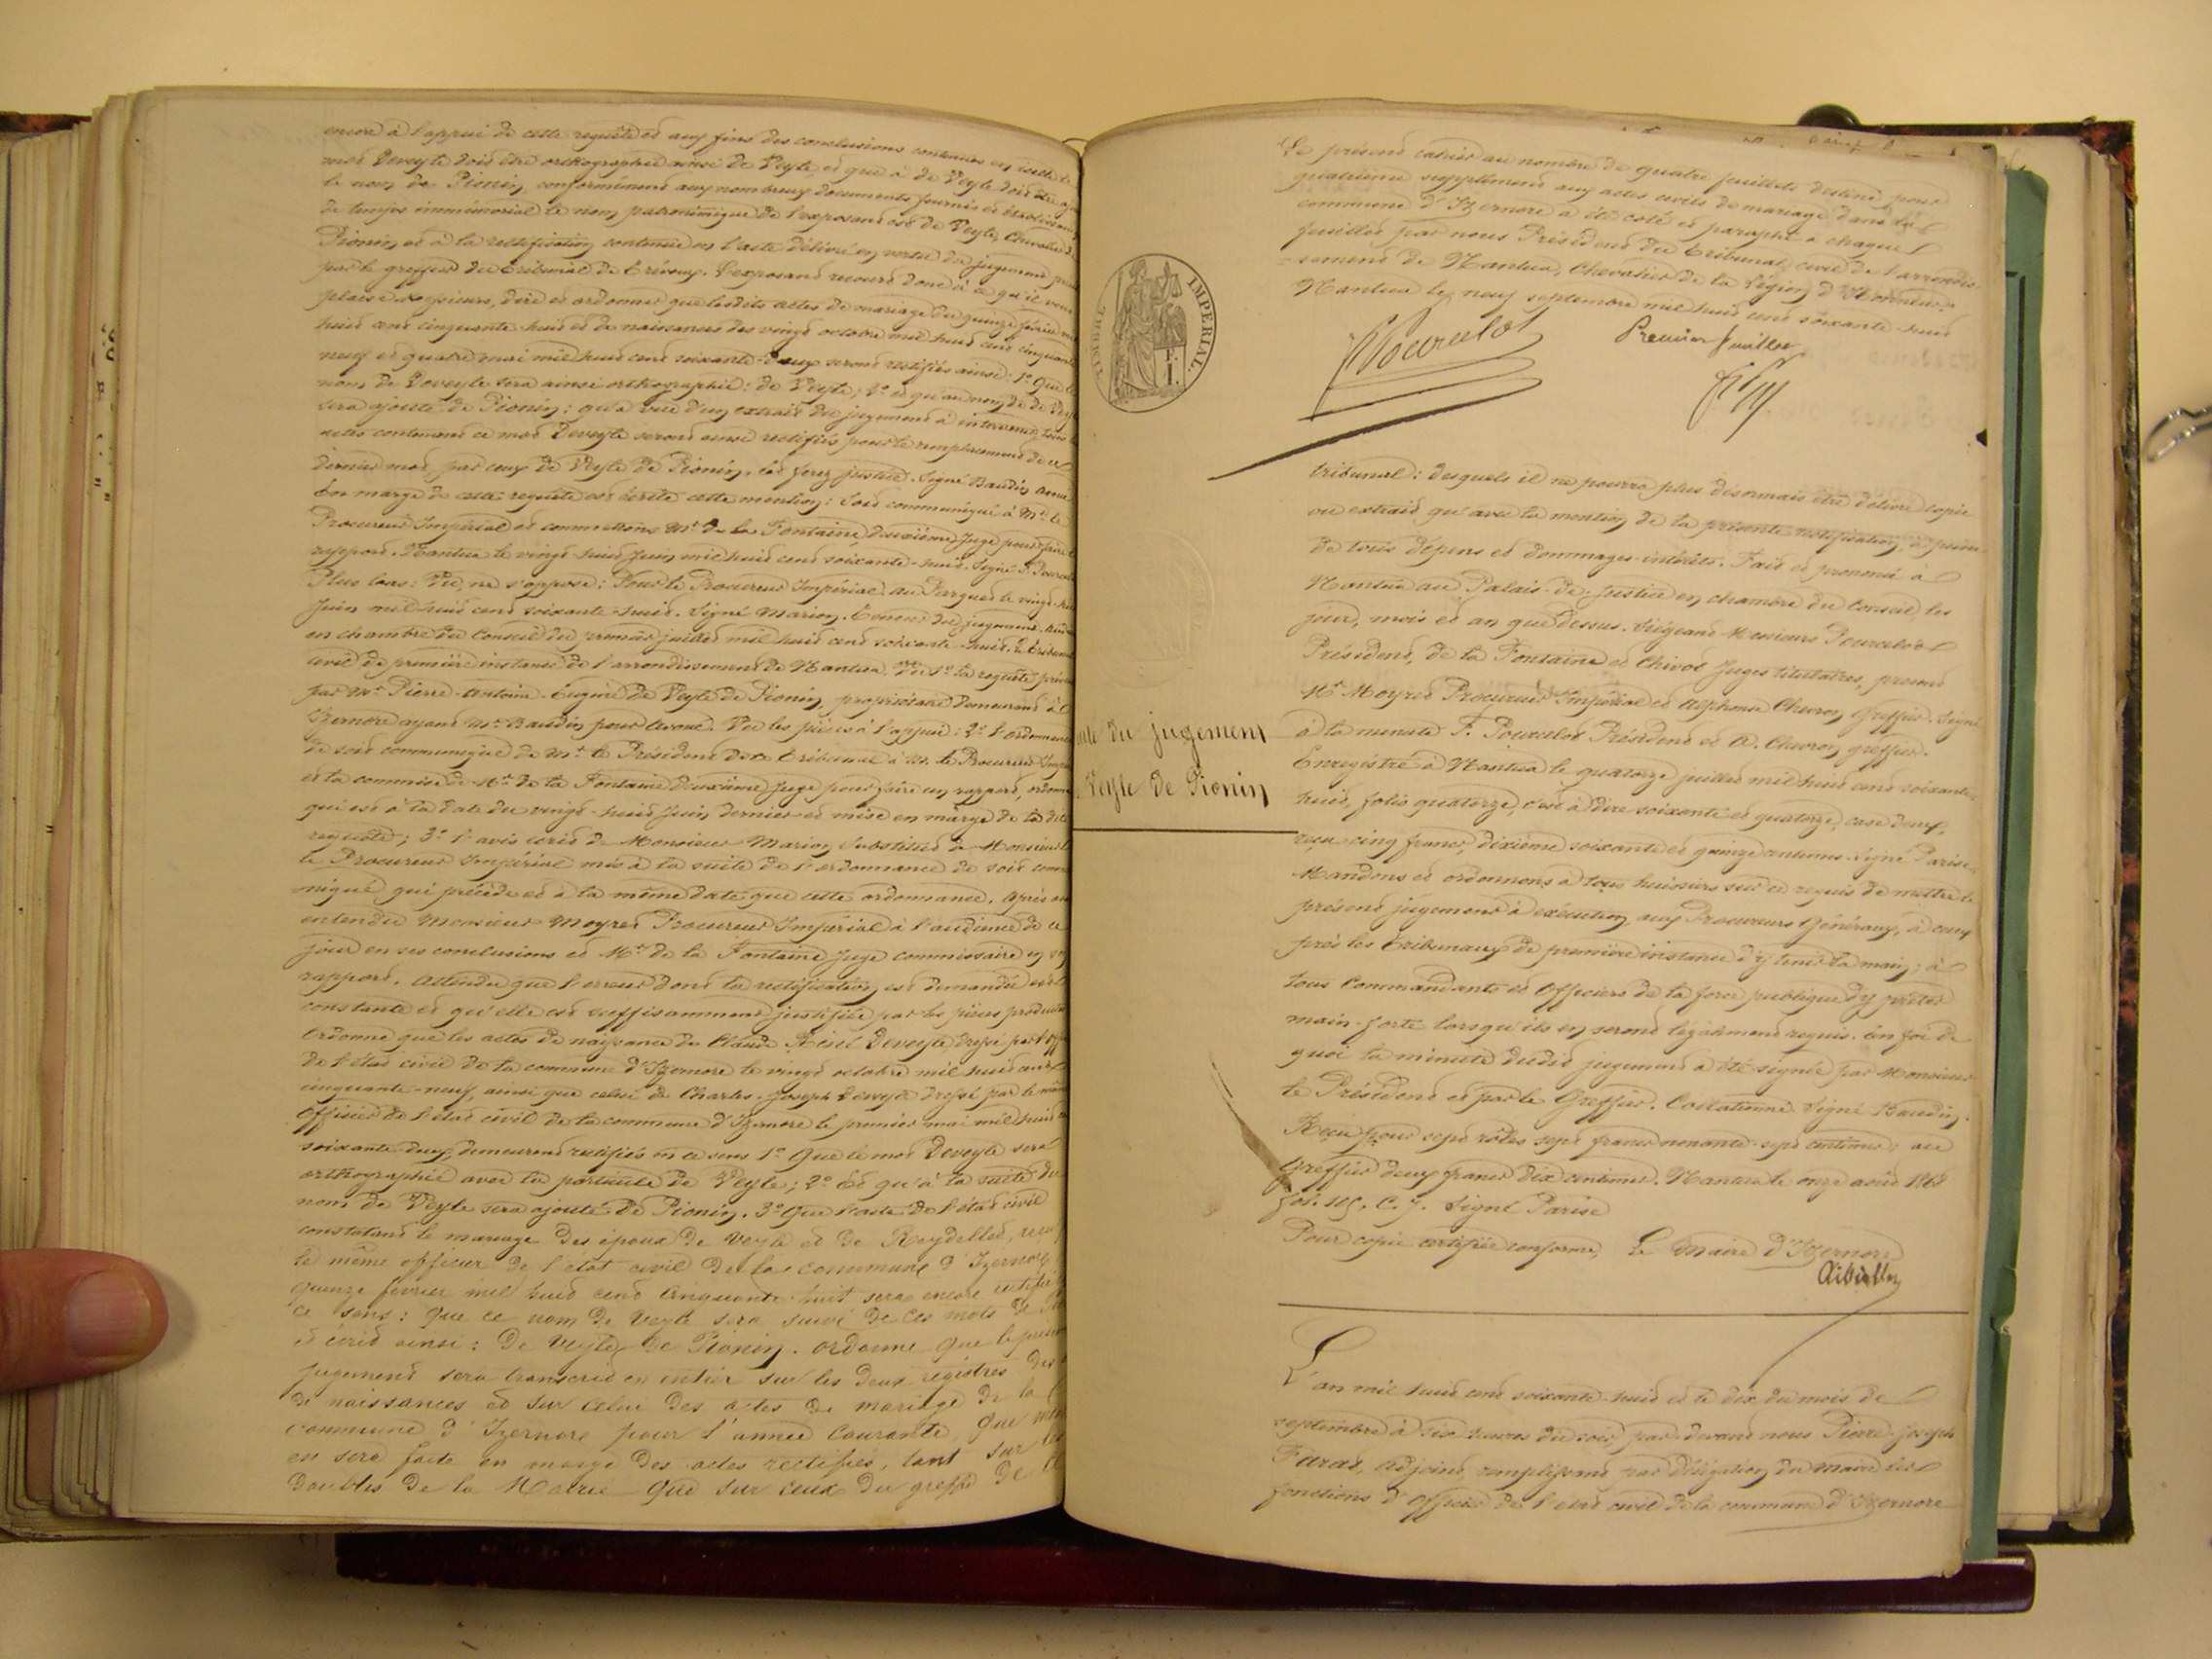 encore à l'appui de cette requête et aux fins des conclusions contenues en icelle le
mot Deveyle doit être orthographié ainsi de Veyle et que à de Veyle doit être
le nom de Pionin conformément aux nombreux documents fournis et établissant
de temps immémorial le nom patronimique de l'exposant est de Veyle, Chevalier
Pionin et à la rectification contenue en l'acte délivré en vertu du jugement
par le greffier du tribunal de Trévoux. L'exposant recourt donc à ce qu'il vous
plaise Messieurs, dire et ordonner que lesdits actes de mariage du quinze février mil
huit cent cinquante huit et de naissances des vingt octobre mil huit cent cinquante
neuf et quatre mai mil huit cent soixante-deux seront rectifiés ainsi: 1° Que le
nom de Deveyle sera ainsi orthographié: de Veyle; 2° et qu'au nom de de Veyle
sera ajouté de Pionin: qu'à vue d'un extrait du jugement à intervenir, tous
actes contenant ce mot Deveyle seront ainsi rectifiés pour le remplacement de ce
dernier mot par ceux de Veyle de Pionin. Et ferez justice. Signé Baudin avoué
En marge de cette requête est écrite cette mention: Soit communiqué à Mr. le
Procureur Impérial et commettons Mr. de la Fontaine, deuxième Juge pour faire
rapport. Nantua le vingt huit Juin mil huit cent soixante-huit. Signé F. Pourcelot
Plus bas: Vu, ne s'oppose: Pour le Procureur Impérial au Parquet le vingt-huit
Juin mil huit cent soixante-huit. Signé Marion. Teneur du jugement.
en chambre du Conseil du premier juillet mil huit cent soixante-huit. Le tribunal
civil de première instance de l'arrondissement de Nantua. Vu 1° la requête
par Mr Pierre-Antoine-Eugène de Veyle de Pionin, propriétaire demeurant à
Izernore ayant Me. Baudin pour Avoué. Vu les pièces à l'appui: 2° l'ordonnance
de soit communiqué de Mr. le Président de ce tribunal à Mr. le Procureur Impérial
et la commise de Mr. de la Fontaine deuxième Juge pour faire un rapport, ordonnance
qui est à la date du vingt-huit Juin dernier et mise en marge de la dite
requête; 3° l'avis écrit de Monsieur Marion Substitut de Monsieur
le Procureur Impérial mis à la suite de l'ordonnance de soit commu-
niqué qui précède et à la même date que cette ordonnance. Après avoir
entendu Monsieur Moyret Procureur Impérial à l'audience de ce
jour en ses conclusions et Mr. de la Fontaine Juge commissaire en son
rapport. Attendu que l'erreur dont la rectification est demandée est
constante et qu'elle est suffisamment justifiée par les pièces produites
Ordonne que les actes de naissance de Claude Deveyle, dressé par l'off
de l'état civil de la commune d'Izernore le vingt octobre mil huit cent
cinquante-neuf, ainsi que celui de Charles-Joseph Deveyle dressé par le même
Officier de l'état civil de la commune d'Izernore le premier mai mil huit cent
soixante deux, demeurent rectifiés en ce sens 1° Que le mot Deveyle sera
orthographié avec la particule de Veyle; 2° Et qu'à la suite du
nom de Veyle sera ajouté de Pionin. 3° Que l'acte de l'état civil
constatant le mariage des époux de Veyle et de Reydellet, reçu
le même officier de l'état civil de la commune d'Izernore
quinze février mil huit cent cinquante-huit sera encore rectifié
ce sens: que ce nom de Veyle sera suivi de ces mots de
et écrit ainsi: de Veyle de Pionin. ordonne que le présent
jugement sera transcrit en entier sur les deux registres des
de naissances et sur celui des actes de mariage de la
commune d'Izernore pour l'année courante, que
en sera faite en marge des actes rectifiés, tant sur les
doubles de la Mairie que sur ceux du greffe de
Le présent cahier au nombre de quatre feuillets destiné pour
quatrième supplément aux actes civils de mariage dans la
commune d'Izernore a été coté et paraphé à chaque
feuillet par nous Président du tribunal civil de l'arrondis-
sement de Nantua, Chevalier de la Légion d'Honneur.
Nantua le neuf septembre mil huit cent soixante-huit
Pourcelot
Premier feuillet
TIMBRE IMPERIAL.
tribunal: desquels il ne pourra plus désormais être délivré copie
ou extrait qu'avec la mention de la présente rectification, à peine
de tous dépens et dommages-intérêts. Fait et prononcé à
Nantua au Palais-de-Justice en chambre du Conseil, les
jour, mois et an que dessus. Siégeant Messieurs Pourcelot
Président, de la Fontaine et Chivot Juges titulaires, présent
Mr. Moyret Procureur Impérial et Alphonse Chevron Greffier. Signé
à la minute F. Pourcelot Président et A. Chevron greffier.
Enregistré à Nantua le quatorze juillet mil huit cent soixante-
huit, folio quatorze, c'est à dire soixante et quatorze, case deux,
reçu cinq francs, dixième soixante et quinze centimes. Signé Parise.
Mandons et ordonnons à tous huissiers sur ce requis de mettre le
présent jugement à exécution, aux Procureurs Généraux, à ceux
près les tribunaux de première instance d'y tenir la main: à
tous Commandants et Officiers de la force publique d'y prêter
main-forte lorsqu'ils en seront légalement requis. En foi de
quoi la minute dudit jugement a été signée par Monsieur
le Président et par le Greffier. Collationné. Signé Baudin.
Reçu pour sept rôles sept francs nonante-sept centimes; au
Greffier deux francs dix centimes. Nantua le onze août 1868
fol. 115. C. 7. Signé Parise
Pour copie certifiée conforme, Le Maire d'Izernore
du jugement
Veyle de Pionin
L'an mil huit cent soixante-huit et le dix du mois de
septembre à six heures du soir par-devant nous Pierre-Joseph
Adjoint, remplissant par délégation du Maire les
fonctions d'Officier de l'état civil de la commune d'Izernore